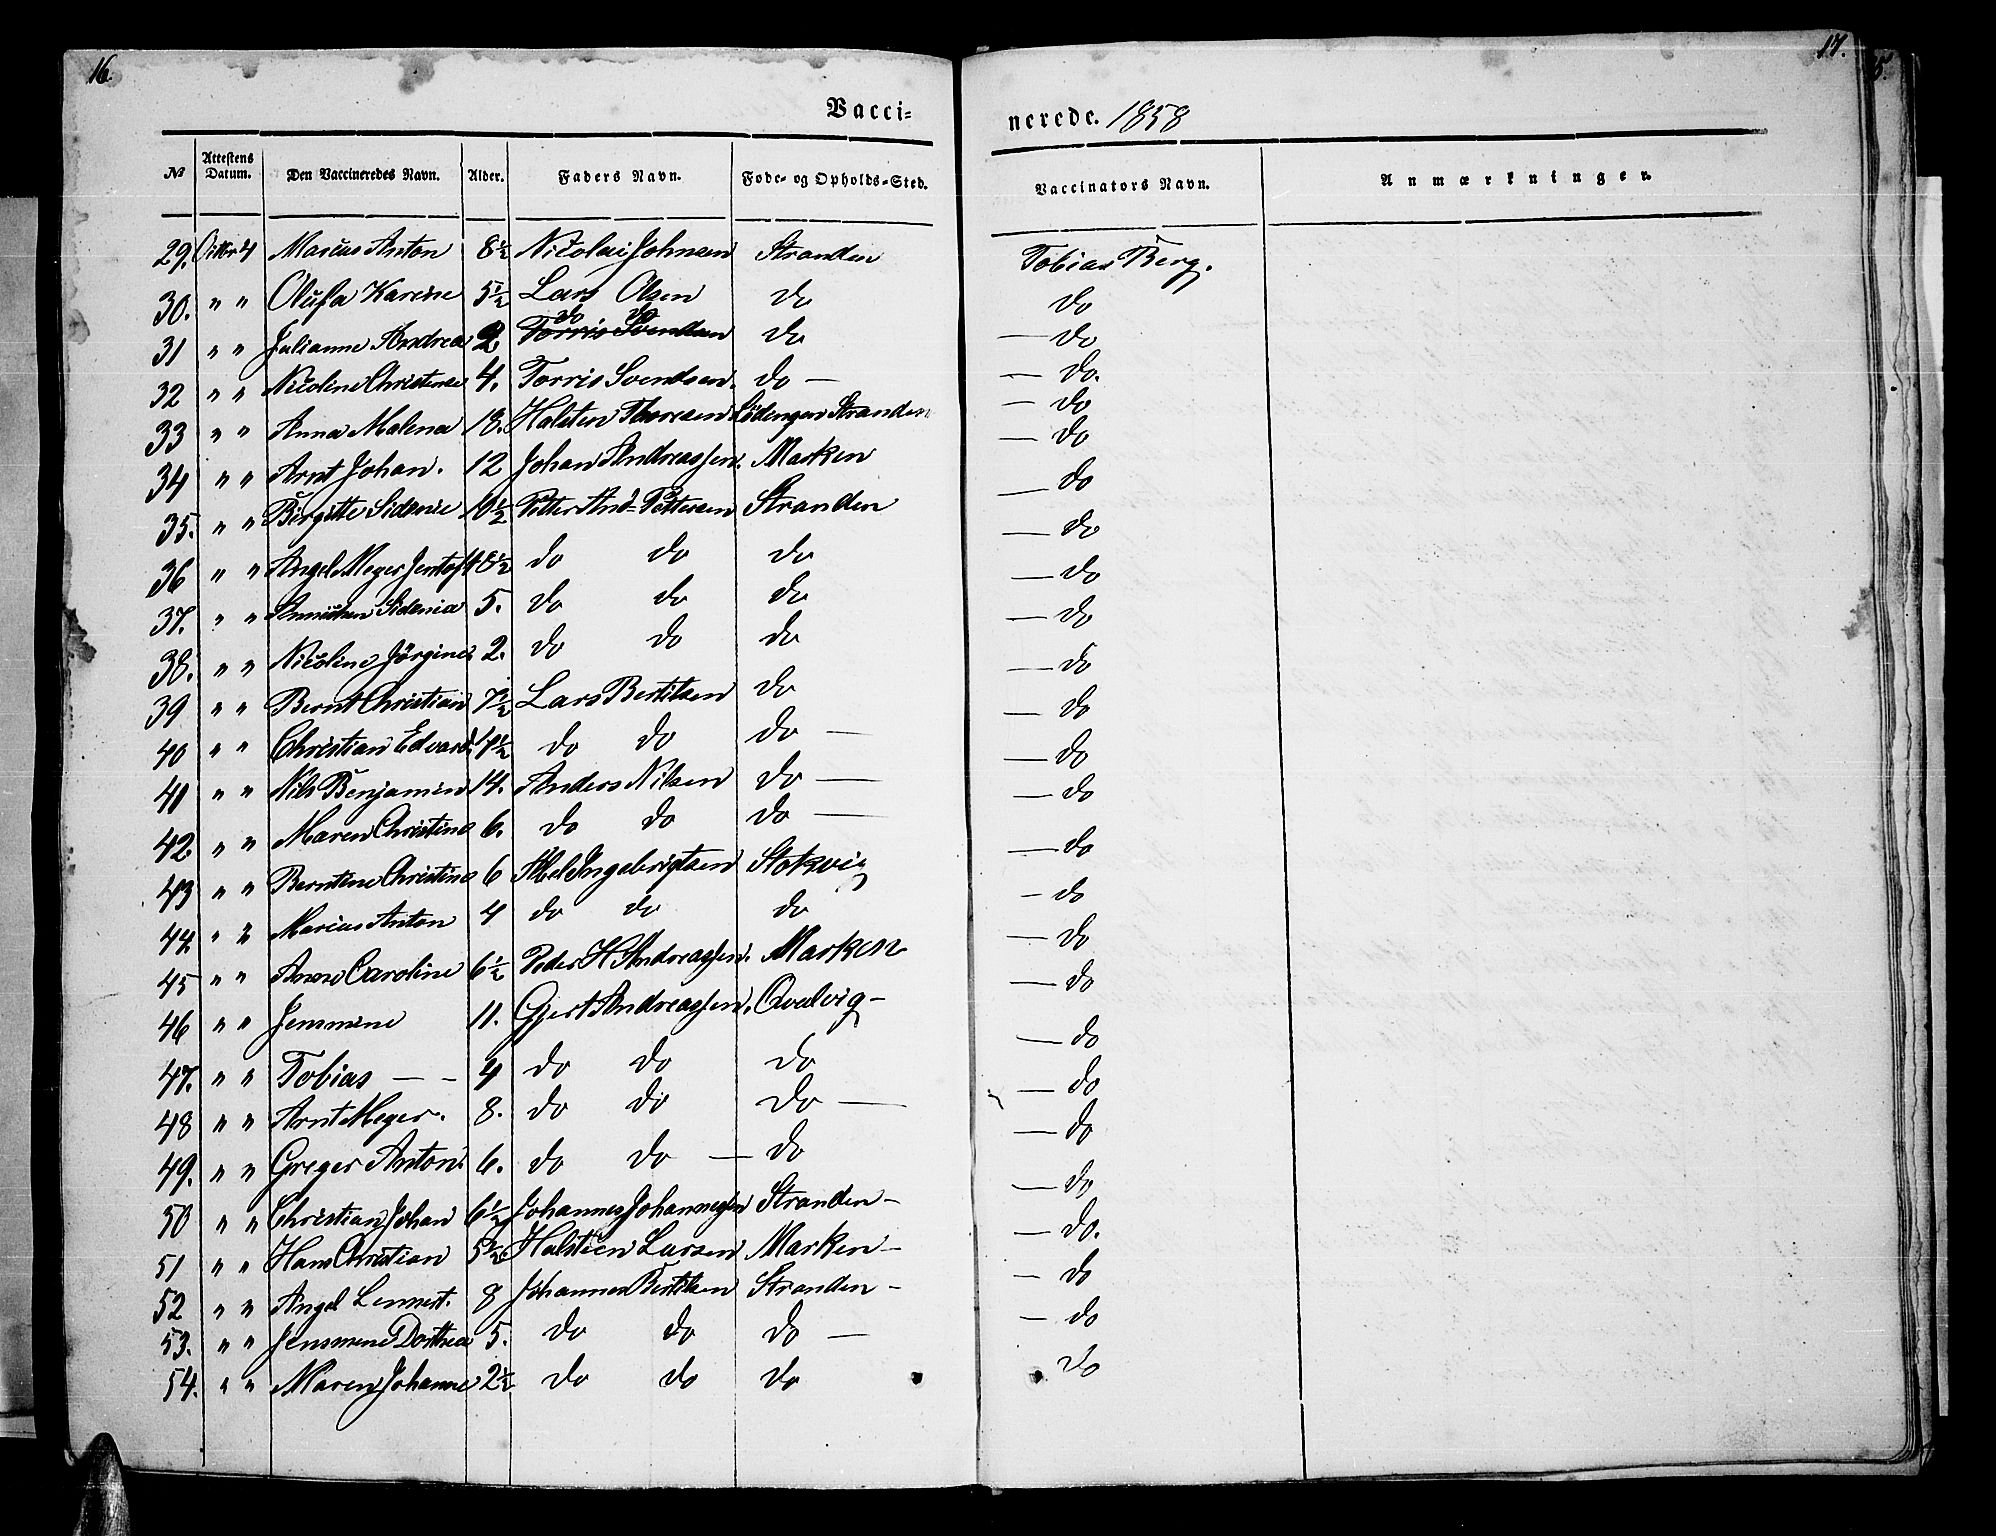 16.
17.
Vacci-
nerede. 1858
№ Attestens Datum. Den Vaccineredes Navn. Alder. Faders Navn. Føde- og Opholds-Sted. Vaccinators Navn. Anmærkninger.
29. Octbr 4 Marius Anton 8½ Nicolai Johnsen Stranden Tobias Berg.
30. " " Olufa Karine 5½ Lars Olsen do do
31 " " Julianne Andrea 2 Torris Svendsen do do do — do
32 " " Nicoline Christense 4. Torris Svendsen. do — — do.
33 " " Anna Malena 18. Halsten Thoresen Lödengen Stranden — do
34 " " Arnt Johan. 12 Johan Andreassen. Marken — do
35. " " Birgitte Sidenie 10½ Petter And- Pettersen Stranden — do
36 " " Angel Meyer Jentoft 8½ do do do — do
37. " " Sidenia 5. do do do — do
38. " " Nicoline Jörgine 2. do do do — do
39 " " Bernt Christian 7½ Lars Bertilsen do — do
40 " " Christian Edvard. 4½ do do do — — do
41 " " Nils Benjamin 14. Anders Nilsen do — — do
42 " " Maren Christine 6. do do do — — do
43 " " Berntine Christine 6 Abel Ingebrigtsen Stokvig — do
44 " " Marius Anton 4 do do do — do
45 " " Anne Caroline 6½ Peder H Andreassen. Marken — do
46 " " Jensmine 11. Gjert Andreassen. Qvalvig — — do
47. " " Tobias — — 4 do do do — do
48 " " Arnt Meyer. 8. do do do — — do
49. " " Greger Anton. 6. do do — do — do
50 " " Christian Johan 6½ Johannes Johannessen Stranden — — do
51 " " Hans Christian 5½ Halsten Larsen Marken — — do.
52 " " Angel Lennert. 8 Johannes Bertilsen Stranden — — do
53. " " Jensmine Dorthea 5. do do do — — do
54. " " Maren Johanne 2½ do do do do